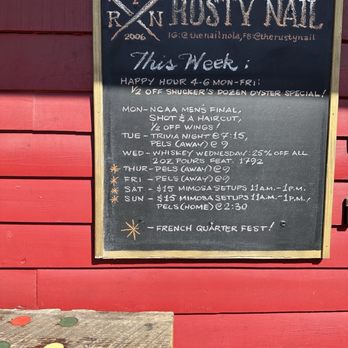 R N
2006
RUSTY NAIL
IG:@thenailnola, FB:@therustynail
This Week:
HAPPY HOUR 4-6 MON-FRI:
½ OFF SHUCKER'S DOZEN OYSTER SPECIAL!
MON-NCAA MEN'S FINAL,
SHOT & A HAIRCUT,
½ OFF WINGS!
TUE-TRIVIA NIGHT @ 7:15,
PELS (AWAY) @ 9
WED-WHISKEY WEDNESDAY: 25% OFF ALL
2OZ POURS FEAT. 1792
THUR-PELS (AWAY) @ 9
FRI - PELS (AWAY) @ 9
SAT - $15 MIMOSA SETUPS 11AM.-1P.M.
SUN - $15 MIMOSA SETUPS 11A.M-1P.M./
PELS (HOME) @ 2:30
-FRENCH QUARTER FEST!